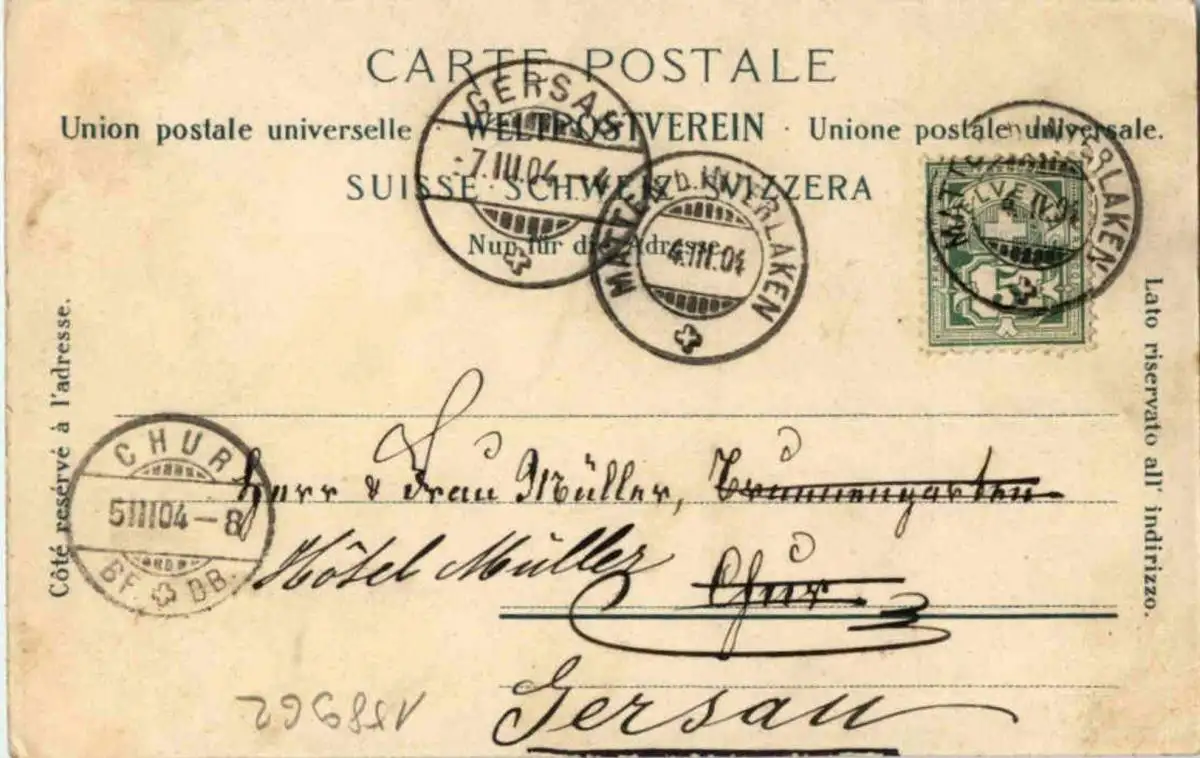 CARTE POSTALE
Union postale universelle · WELTPOSTVEREIN · Unione postale universale.
SUISSE SCHWEIZ SVIZZERA
Nur für die Adresse.
GERSAU
-7.III.04.-4
MATTEN b. INTERLAKEN
4.III.04
MATTEN b. INTERLAKEN
HELVETIA
5
Côté reservé à l'adresse.
Lato riservato all' indirizzo.
CHUR
5III04-8
BF. DB.
Herr & Frau Müller, Brunnengarten
Hôtel Müller
Chur
Gersau
158962